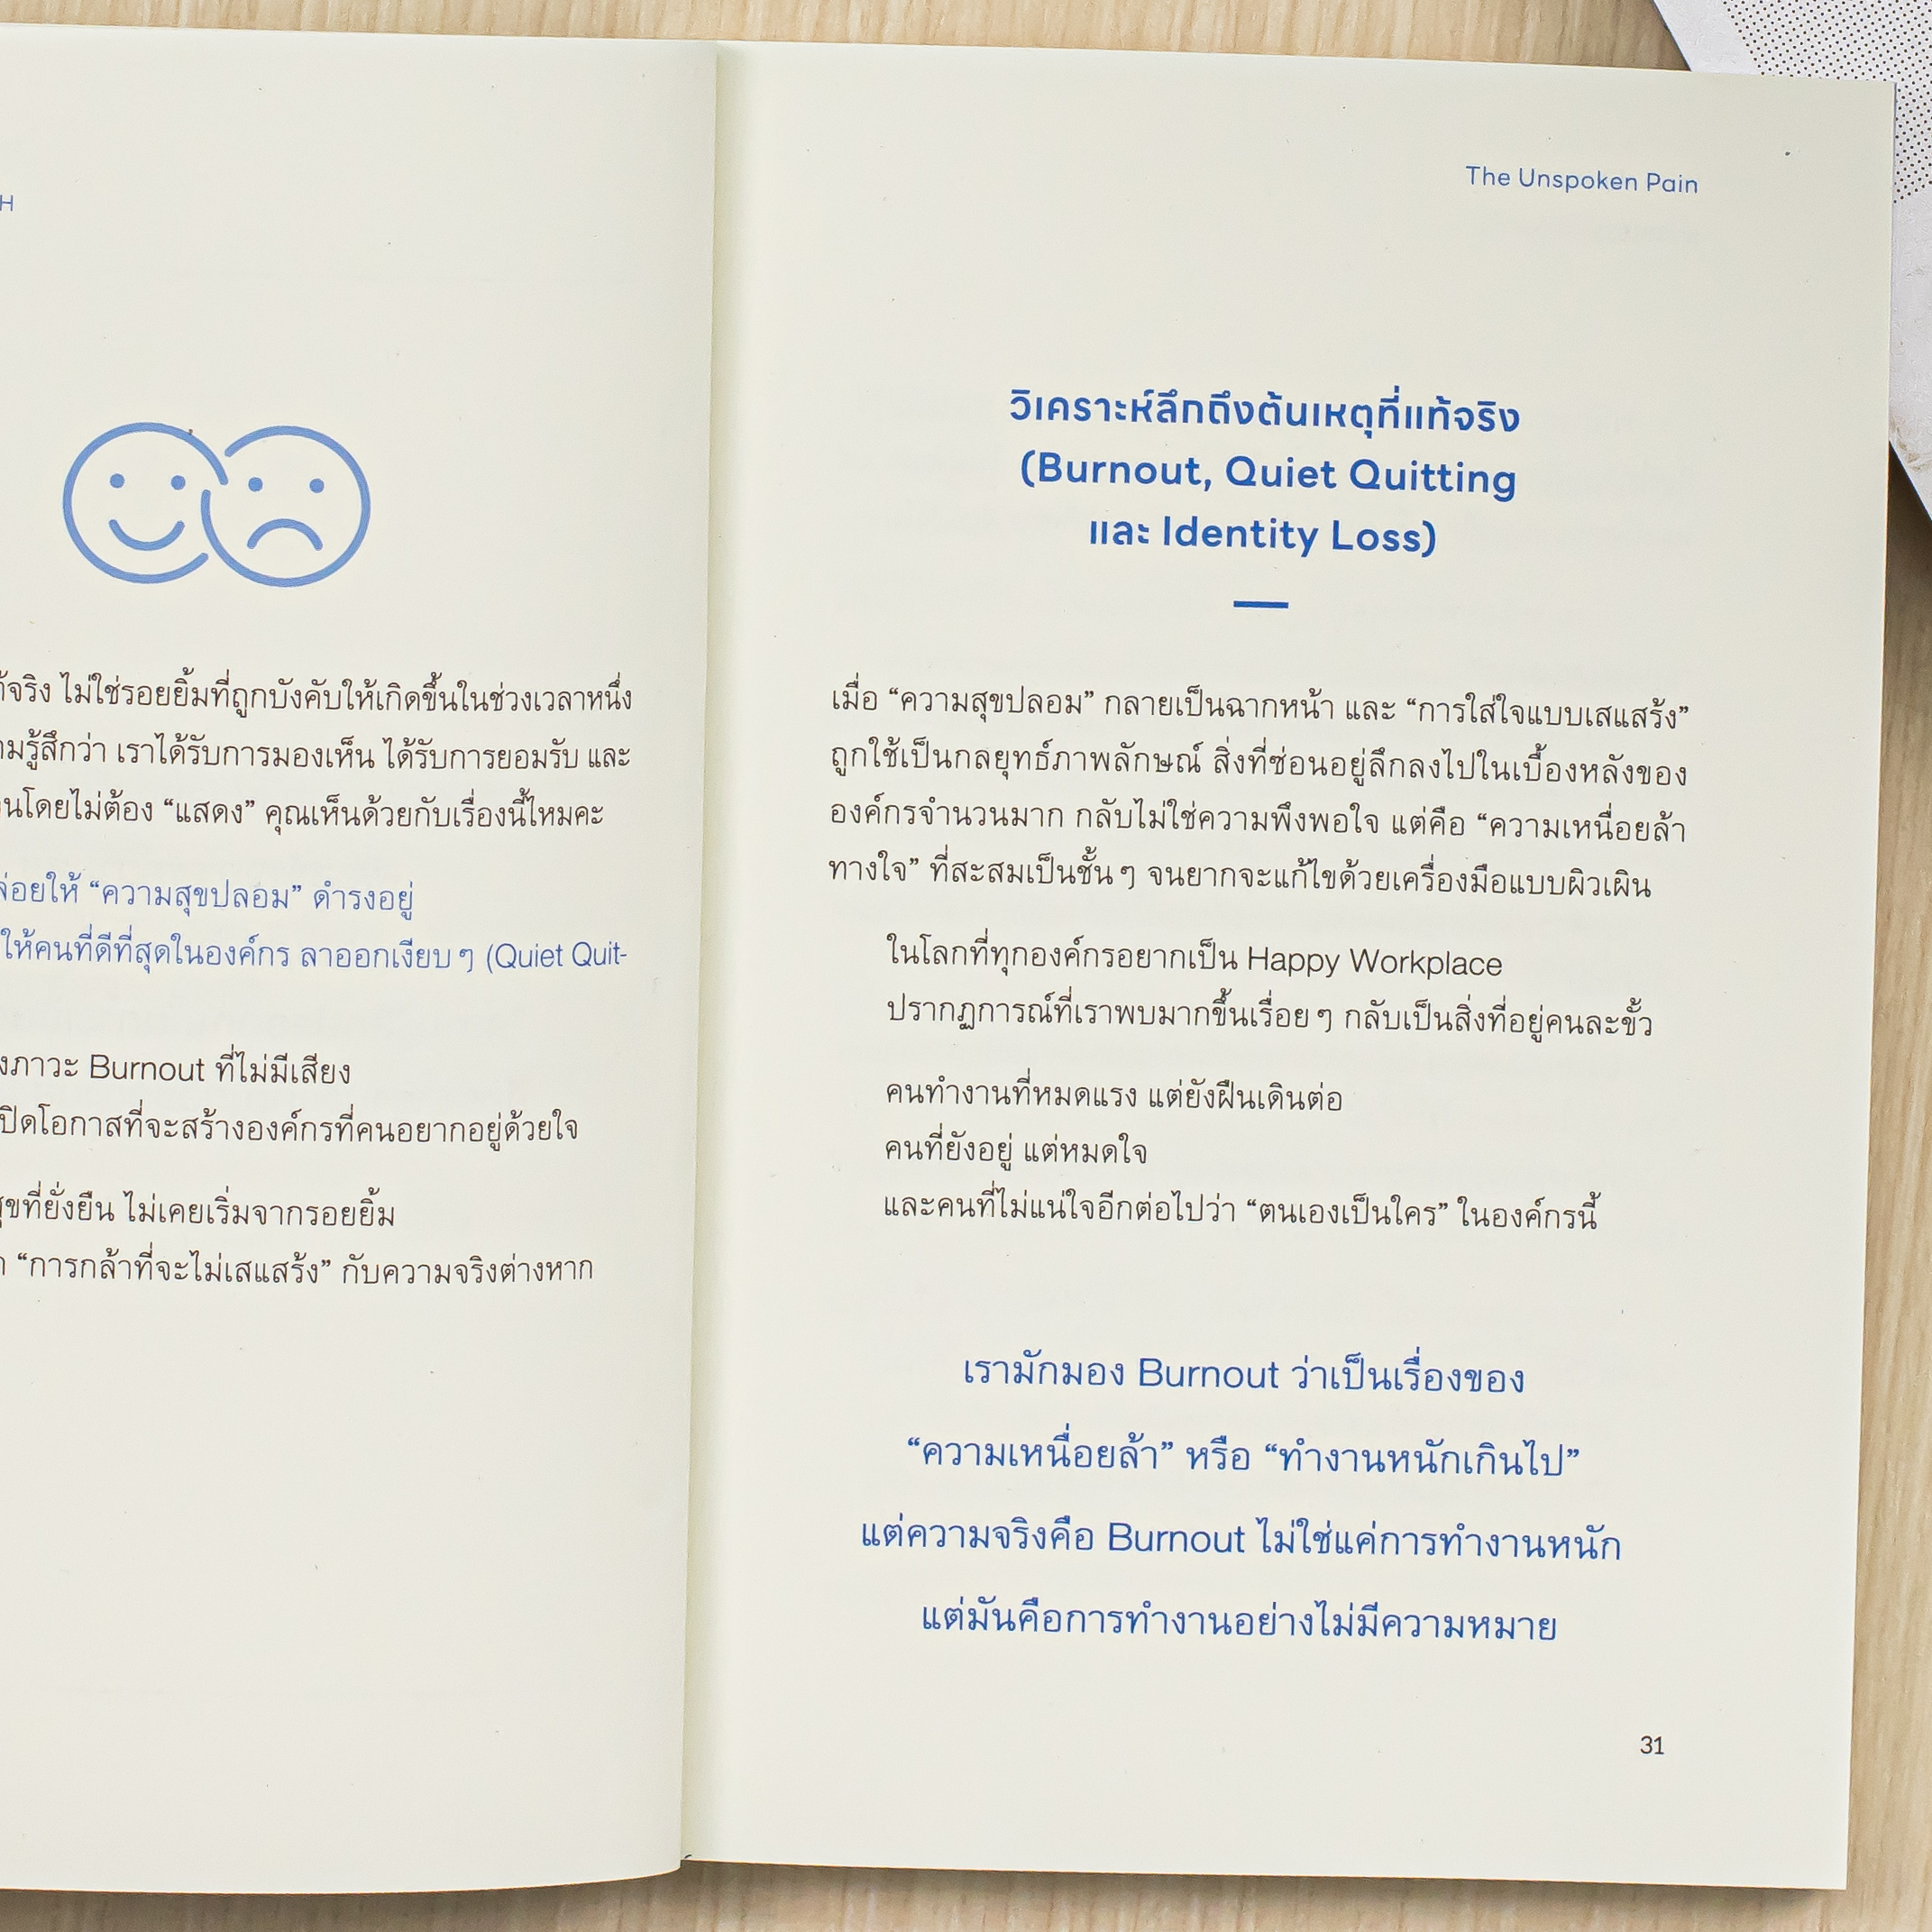 H
ไม่ใช่รอยยิ้มที่ถูกบังคับให้เกิดขึ้นในช่วงเวลาหนึ่ง
เราได้รับการมองเห็น ได้รับการยอมรับ และ
โดยไม่ต้อง “แสดง” คุณเห็นด้วยกับเรื่องนี้ไหมคะ
“ความสุขปลอม” ดำรงอยู่
ให้คนที่ดีที่สุดในองค์กร ลาออกเงียบ ๆ (Quiet Quit-
ภาวะ Burnout ที่ไม่มีเสียง
ปิดโอกาสที่จะสร้างองค์กรที่คนอยากอยู่ด้วยใจ
ที่ยั่งยืน ไม่เคยเริ่มจากรอยยิ้ม
“การกล้าที่จะไม่เสแสร้ง” กับความจริงต่างหาก
The Unspoken Pain
วิเคราะห์ลึกถึงต้นเหตุที่แท้จริง
(Burnout, Quiet Quitting
และ Identity Loss)
เมื่อ “ความสุขปลอม” กลายเป็นฉากหน้า และ “การใส่ใจแบบเสแสร้ง”
ถูกใช้เป็นกลยุทธ์ภาพลักษณ์ สิ่งที่ซ่อนอยู่ลึกลงไปในเบื้องหลังของ
องค์กรจำนวนมาก กลับไม่ใช่ความพึงพอใจ แต่คือ “ความเหนื่อยล้า
ทางใจ” ที่สะสมเป็นชั้น ๆ จนยากจะแก้ไขด้วยเครื่องมือแบบผิวเผิน
ในโลกที่ทุกองค์กรอยากเป็น Happy Workplace
ปรากฏการณ์ที่เราพบมากขึ้นเรื่อย ๆ กลับเป็นสิ่งที่อยู่คนละขั้ว
คนทำงานที่หมดแรง แต่ยังฝืนเดินต่อ
คนที่ยังอยู่ แต่หมดใจ
และคนที่ไม่แน่ใจอีกต่อไปว่า “ตนเองเป็นใคร” ในองค์กรนี้
เรามักมอง Burnout ว่าเป็นเรื่องของ
“ความเหนื่อยล้า” หรือ “ทำงานหนักเกินไป”
แต่ความจริงคือ Burnout ไม่ใช่แค่การทำงานหนัก
แต่มันคือการทำงานอย่างไม่มีความหมาย
31